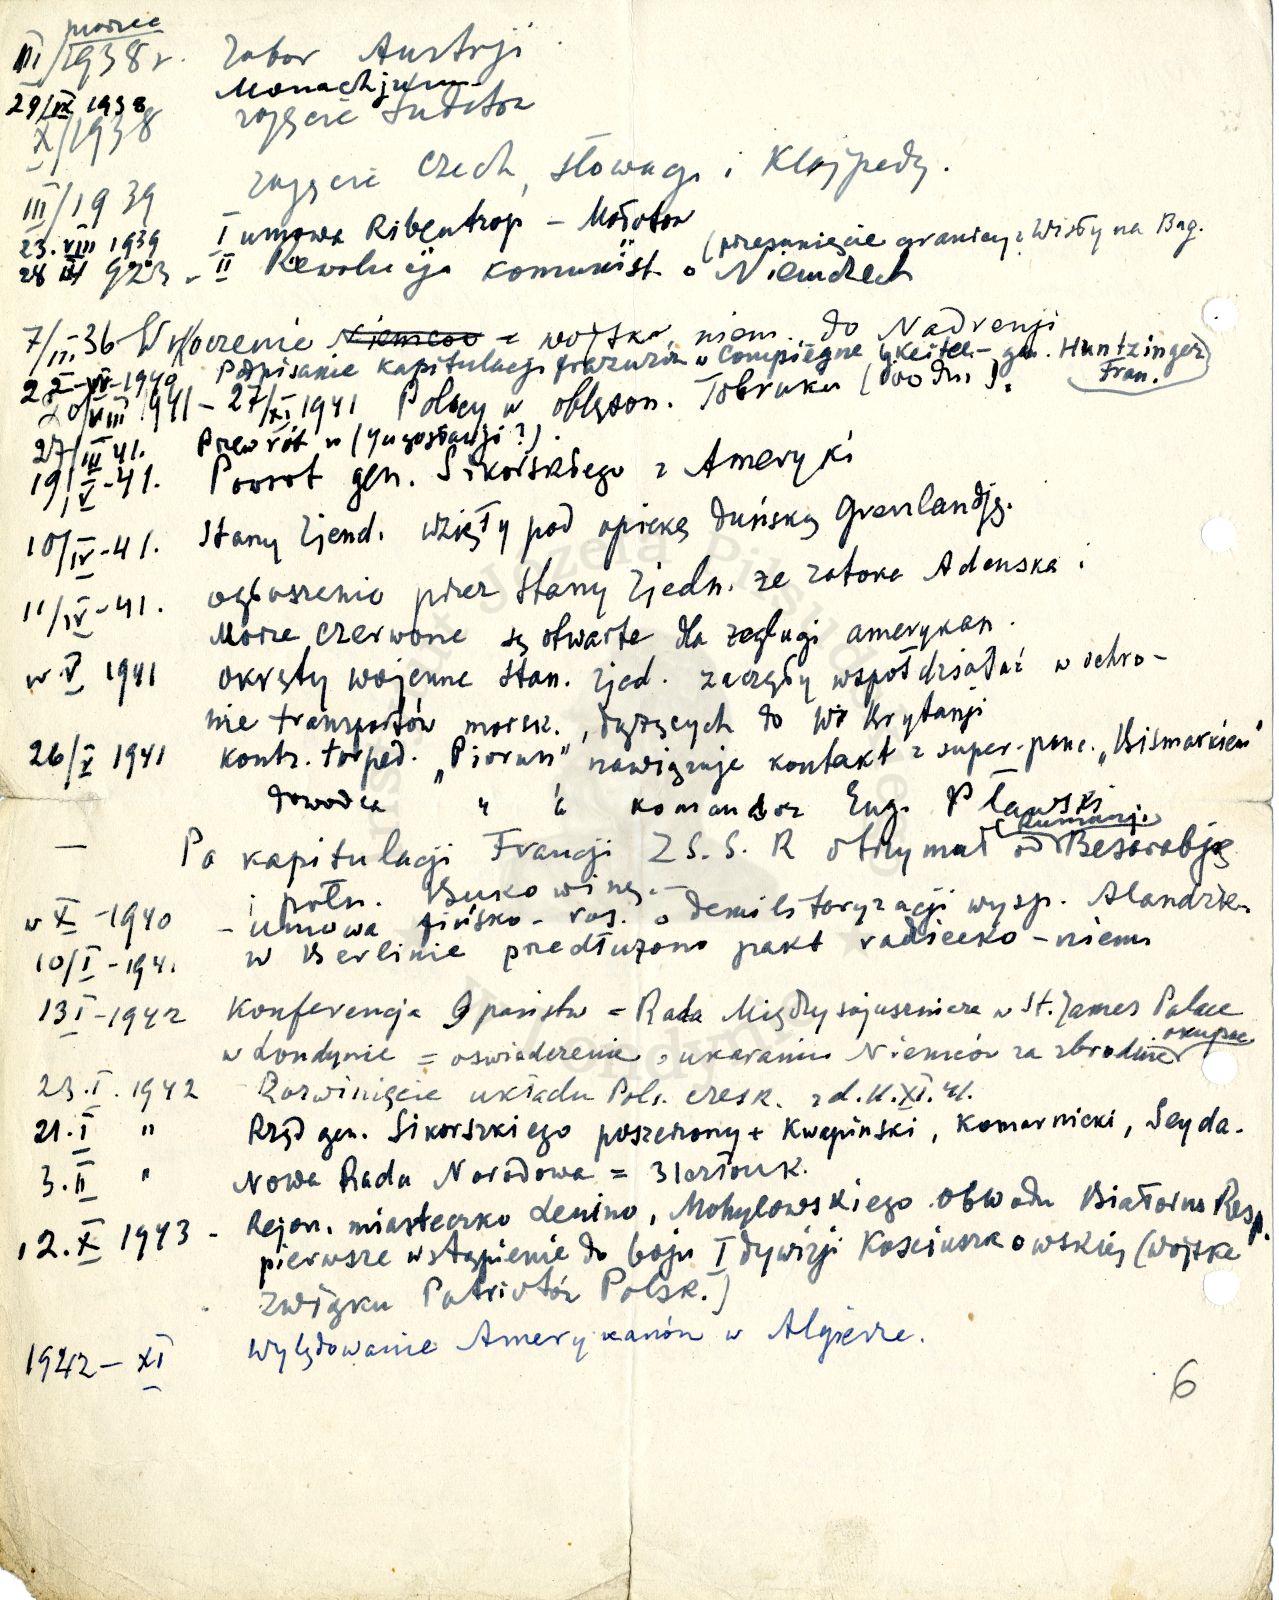 marzec
III/1938 r. Zabór Austrji
29/IX 1938 Monachjum
X/1938 zajęcie Sudetów
III/1939 zajęcie Czech, Słowacji i Kłajpedy.
23.VIII 1939 I umowa Ribentrop – Mołotow
(przesunięcie granicy z Wisły na Bug.
28 923 – II Rewolucja komunist. w Niemczech
7/III.36 Wkroczenie Niemców = wojska niem. do Nadrenji
22–VI–1940 Podpisanie kapitulacji francuzów w Compiegne (Keitel – gen. Huntzinger
fran.
20/VIII 1941 – 27/XI 1941 Polacy w oblężon. Tobruku ( dni).
27/III 41. Przewrót w (Jugosławji?).
19/V–41. Powrót gen. Sikorskiego z Ameryki
10/IV–41. Stany Zjend. wzięły pod opiekę duńską Grenlandję.
11/IV–41. ogłoszenie przez Stany Zjedn. że zatoka Adenska i
Morze Czerwone są otwarte dla żeglugi amerykan.
w V 1941 okręty wojenne Stan. Zjed. zaczęły współdziałać w ochro–
nie transportów morsk., dążących do W. Brytanji
26/V 1941 kontr. torped. „Piorun" nawiązuje kontakt z super-panc. „Bismarkiem"
dowódca " " komandor Eug. Pławski
Rumunji
— Po kapitulacji Francji Z.S.S.R otrzymał od Besarabję
i półn. Bukowinę. –
w X – 1940 – umowa fińsko – ros. o demilitaryzacji wysp. Alandzk.
10/I – 1941 w Berlinie przedłużono pakt radziecko – niem.
13 I – 1942 Konferencja 9 państw = Rada Międzysojusznicza w St. James Palace
w Londynie = oświadczenie o ukaraniu Niemców za zbrodnie okupac.
23.I.1942 Rozwinięcie układu Pols. czesk. z d. 11.XI.41.
21.I " Rząd gen. Sikorskiego poszerzony + Kwapiński, Komarnicki, Seyda.
3.II " Nowa Rada Narodowa = 31 członk.
12.X 1943 – Rejon. miasteczko Lenino, Mohylowskiego obwodu Białorus Resp.
pierwsze wstąpienie do boju I dywizji Kościuszkowskiej (wojska
związku Patriotów Polsk.)
1942 – XI Wylądowanie Amerykanów w Algierze.
6